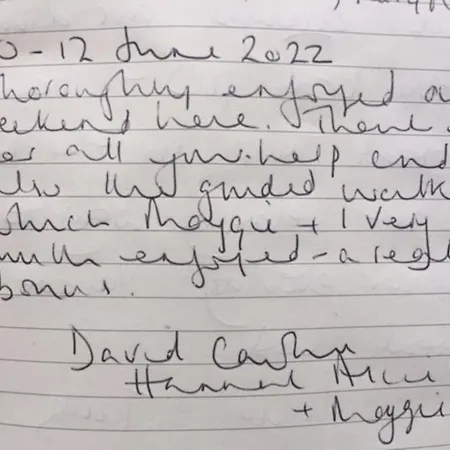 0-12 June 2022
horoughly enjoyed ou
eekend here. Thank
or all your help and
lso the guided walk
which Maggie + I very
much enjoyed - a real
bonus.
David
Hannah
+ Maggie